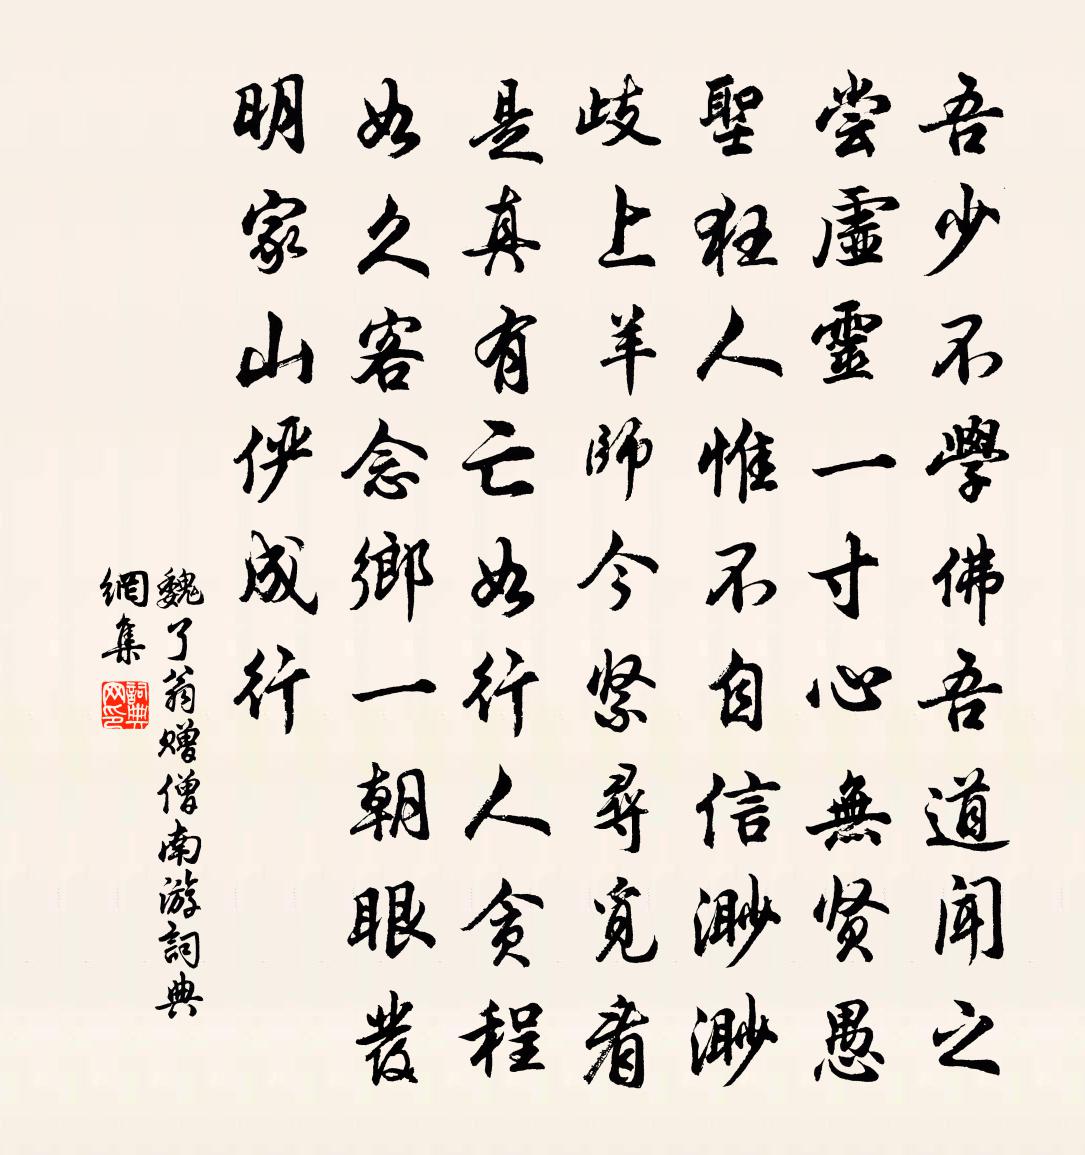 吾少不學佛吾道聞之
尝虚靈一寸心無贤愚
聖狂人惟不自信渺渺
歧上羊師今紧尋覓看
是真有亡如行人贪程
如久客念鄉一朝眼發
明家山俨成行
魏了翁赠僧南游詞典
網集
詞典
网印